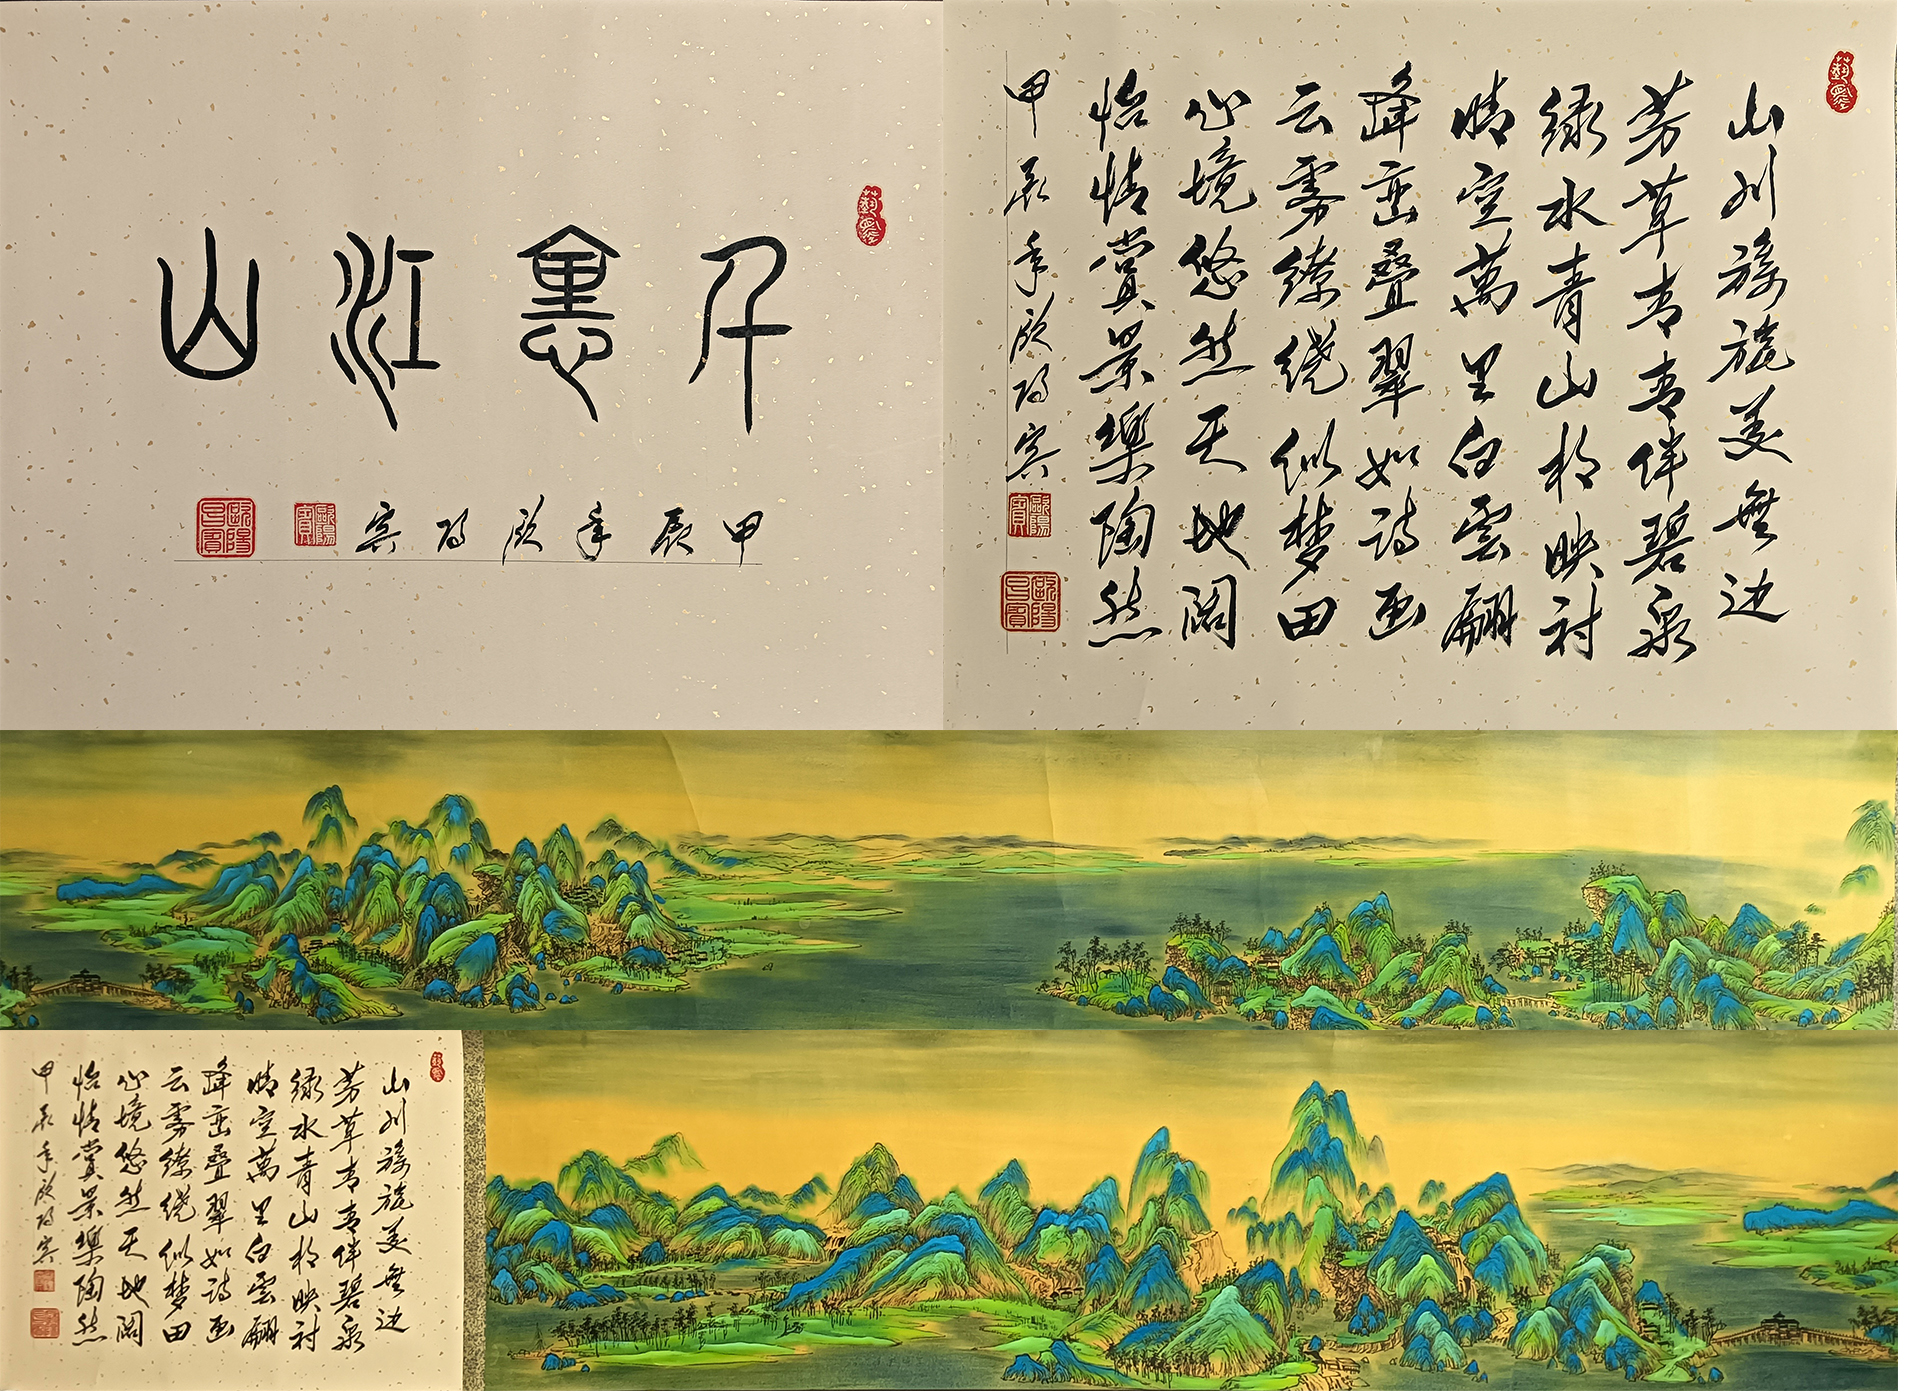 千里江山
甲辰年欧阳宾
歐陽賓
山川旖旎美無边
芳草青青伴碧泉
绿水青山相映衬
晴空萬里白雲翩
峰峦叠翠如诗画
云雾缭绕似梦田
心境悠然天地阔
怡情賞景樂陶然
甲辰年欧阳宾
歐陽賓
山川旖旎美無边
芳草青青伴碧泉
绿水青山相映衬
晴空萬里白雲翩
峰峦叠翠如诗画
云雾缭绕似梦田
心境悠然天地阔
怡情賞景樂陶然
甲辰年欧阳宾